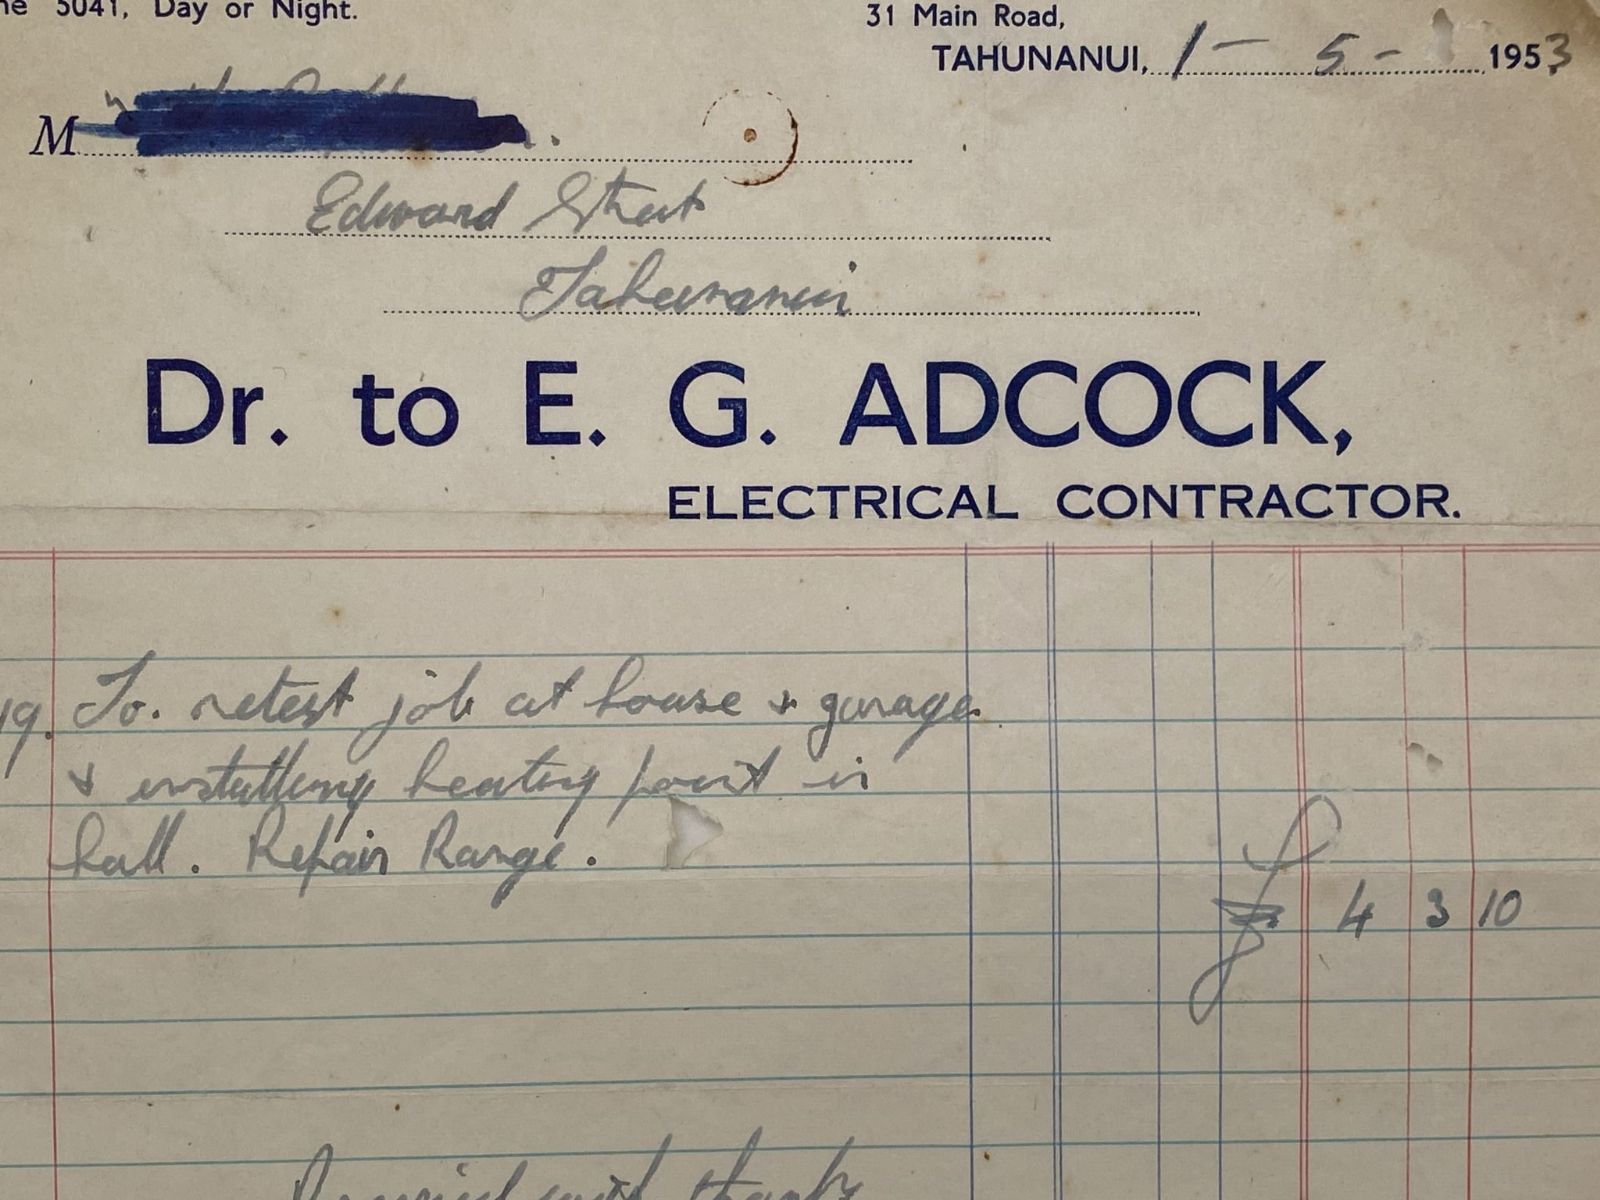 5041, Day or Night.
31 Main Road,
TAHUNANUI, 1 - 5 - 1953
M
Edward Street
Tahunanui
Dr. to E. G. ADCOCK,
ELECTRICAL CONTRACTOR.
19. To. retest job at house & garage
& installing heating point in
hall. Repair Range.
£ 4 3 10
Received with thanks